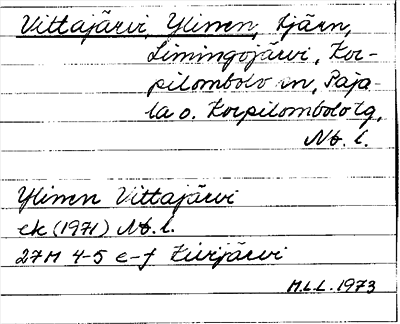 Vittajärvi, Ylinen, tjärn,
Limingojärvi, Kor-
pilombolo sn, Paja-
la o. Korpilombolo tg,
Nb. l.
Ylinen Vittajärvi
ek (1971) Nb. l.
27M 4-5 e-f Kivijärvi
M.L.L. 1973